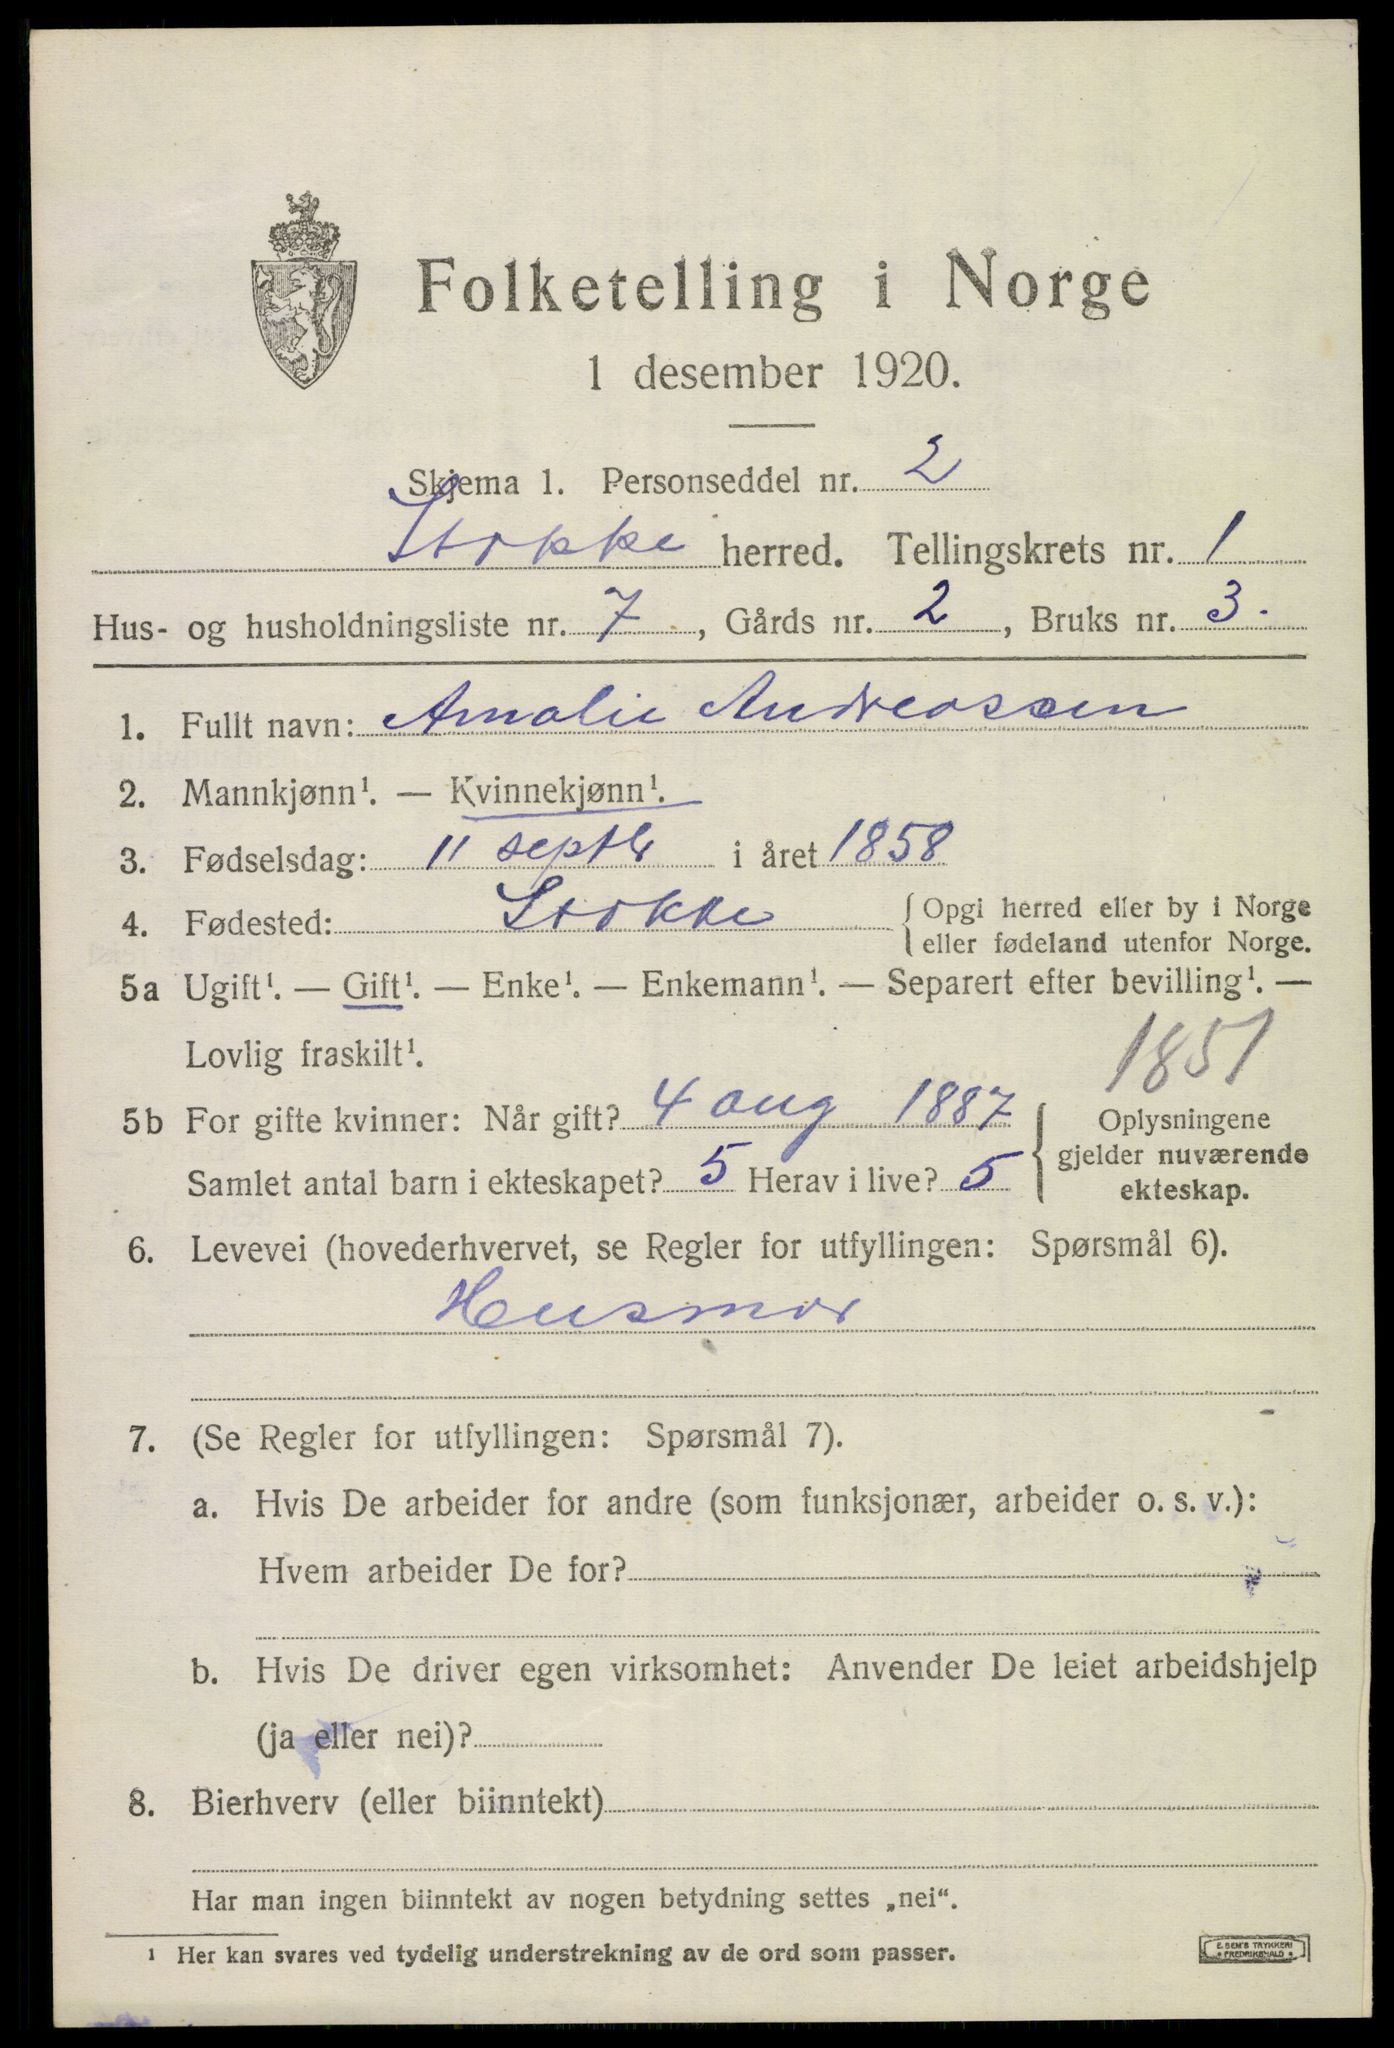 Folketelling i Norge
1 desember 1920.
Skjema 1. Personseddel nr. 2
Stokke herred. Tellingskrets nr. 1
Hus- og husholdningsliste nr. 7, Gårds nr. 2, Bruks nr. 3.
1. Fullt navn: Amalie Andreassen
2. Mannkjønn¹. — Kvinnekjønn¹.
3. Fødselsdag: 11 septbr i året 1858
4. Fødested: Stokke { Opgi herred eller by i Norge
eller fødeland utenfor Norge.
5a Ugift¹. — Gift¹. — Enke¹. — Enkemann¹. — Separert efter bevilling¹. —
Lovlig fraskilt¹.
1851
5b For gifte kvinner: Når gift? 4 aug 1887 { Oplysningene
gjelder nuværende
Samlet antal barn i ekteskapet? 5 Herav i live? 5
ekteskap.
6. Levevei (hovederhvervet, se Regler for utfyllingen: Spørsmål 6).
Husmor
7. (Se Regler for utfyllingen: Spørsmål 7).
a. Hvis De arbeider for andre (som funksjonær, arbeider o. s. v.):
Hvem arbeider De for?
b. Hvis De driver egen virksomhet: Anvender De leiet arbeidshjelp
(ja eller nei)?
8. Bierhverv (eller biinntekt)
Har man ingen biinntekt av nogen betydning settes „nei“.
¹ Her kan svares ved tydelig understrekning av de ord som passer.
E. SEM'S TRYKKERI
• FREDRIKSHALD •